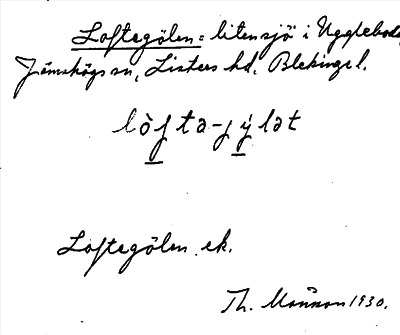 Loftegölen = liten sjö i Uggleboda,
Jämshögs sn, Listers hd, Blekinge l.
lòfta-jýlat
Loftegölen ek.
Th. Månsson 1930.